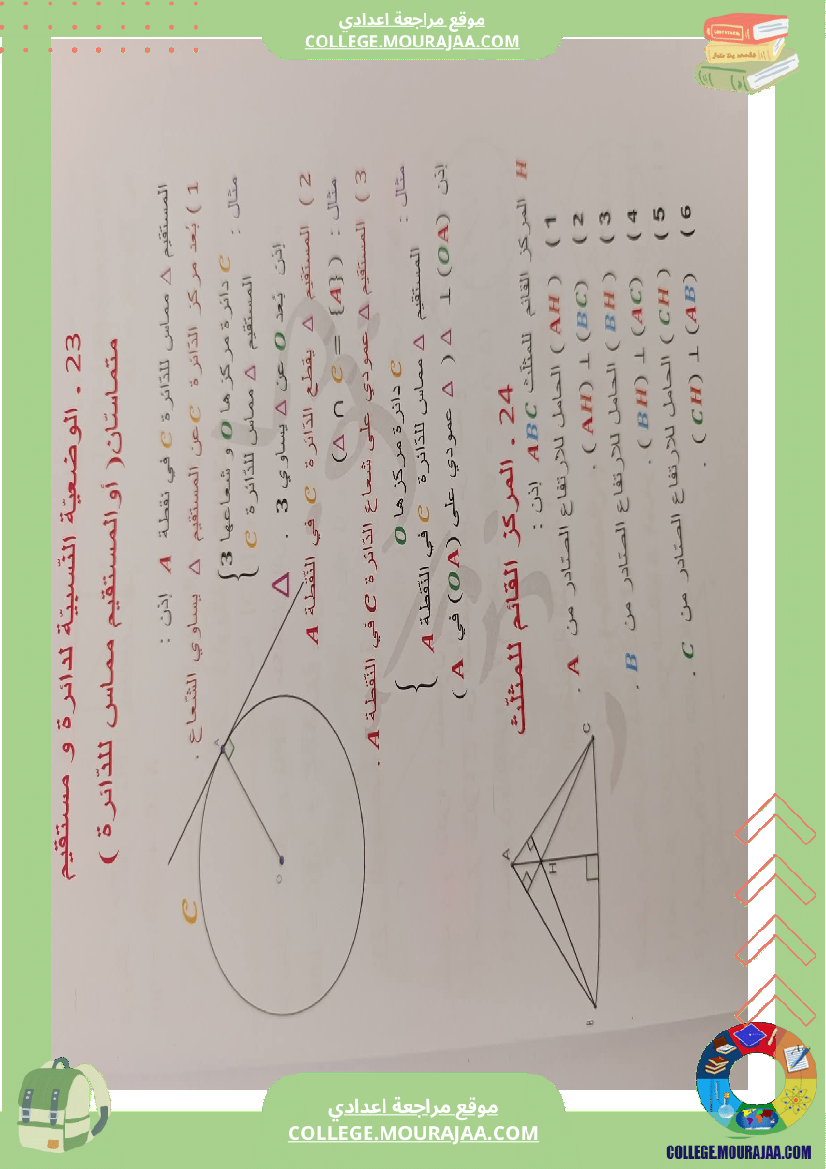 موقع مراجعة اعدادي
COLLEGE.MOURAJAA.COM
23 . الوضعيّة النّسبيّة لدائرة و مستقيم
متماستان( أو المستقيم مماس للدّائرة )
المستقيم Δ مماس للدّائرة C في نقطة A إذن :
1 ) بُعد مركز الدّائرة C عن المستقيم Δ يساوي الشّعاع .
مثال : { C دائرة مركزها O و شعاعها 3
المستقيم Δ مماس للدّائرة C
إذن بُعد O عن Δ يساوي 3 .
2 ) المستقيم Δ يقطع الدّائرة C في النّقطة A
مثال : (Δ ∩ C = {A})
3 ) المستقيم Δ عمودي على شعاع الدّائرة C في النّقطة A .
مثال : { C دائرة مركزها O
المستقيم Δ مماس للدّائرة C في النّقطة A
إذن Δ ⊥ (OA) ( Δ عمودي على (OA) في A )
C
Δ
A
O
24 . المركز القائم للمثلّث
H المركز القائم للمثلّث ABC إذن :
1 ) (AH) الحامل للارتفاع الصّادر من A .
2 ) (AH) ⊥ (BC) .
3 ) (BH) الحامل للارتفاع الصّادر من B .
4 ) (BH) ⊥ (AC) .
5 ) (CH) الحامل للارتفاع الصّادر من C .
6 ) (CH) ⊥ (AB) .
A
H
B
C
موقع مراجعة اعدادي
COLLEGE.MOURAJAA.COM
COLLEGE.MOURAJAA.COM